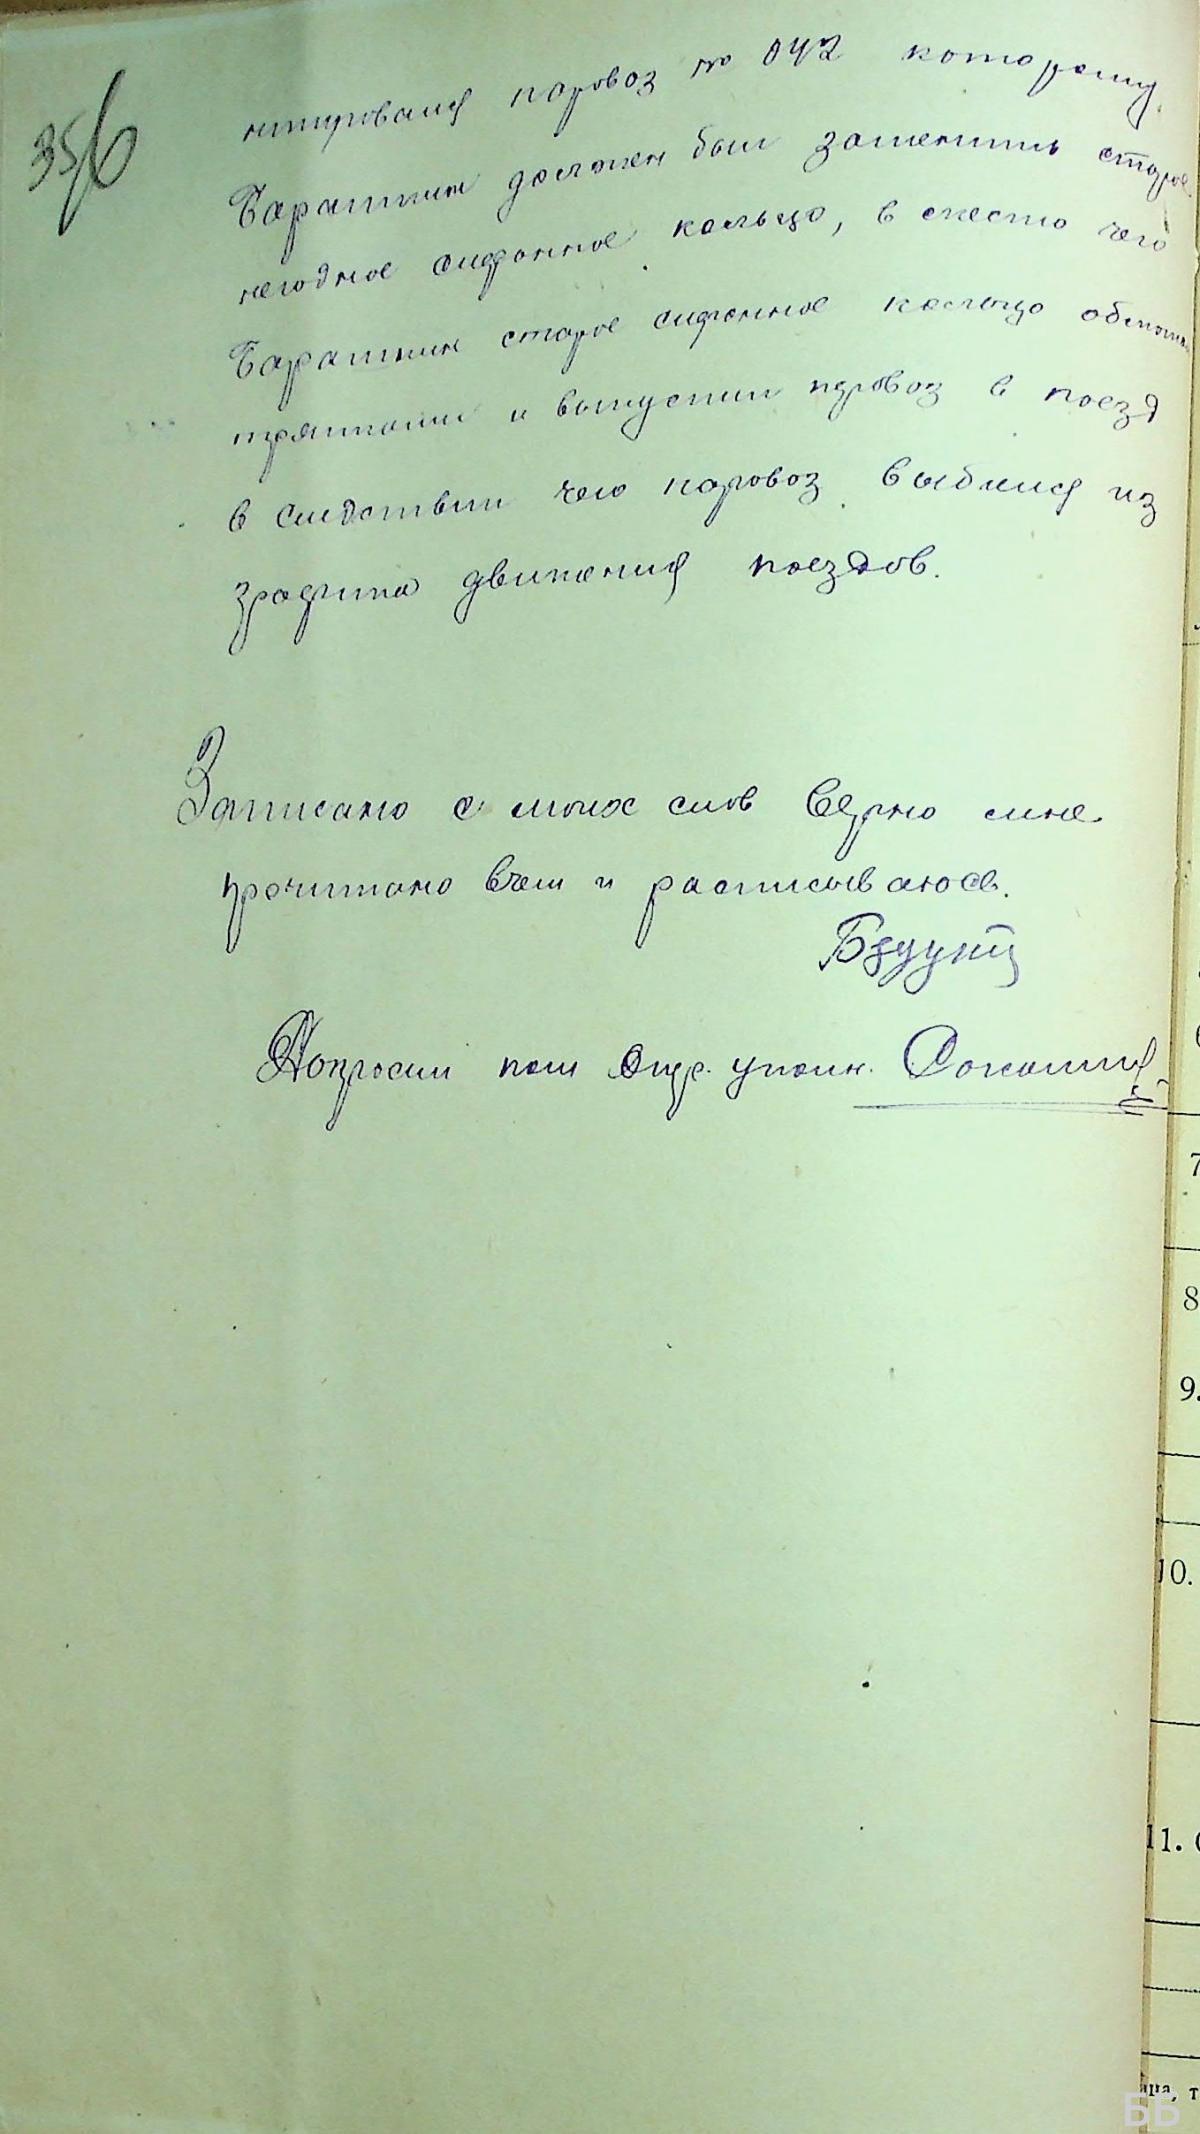 35б
нтировался паровоз по 042 которому
Барашкин должен был заменить старое
негодное сифонное кольцо, в место чего
Барашкин старое сифонное кольцо обмотал
тряпками и выпустил паровоз в поезд
в следствии чего паровоз выбился из
графика движения поездов.
Записано с моих слов верно мне
прочитано в чем и расписываюсь.
Допросил пом Опер. уполн.
7
8
9.
10.
11.
ББ